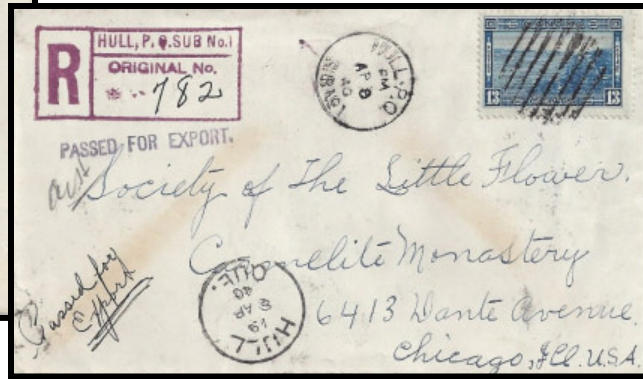 HULL, P. Q. SUB No. 1
R
ORIGINAL No.
782
HULL. P.Q
PM
AP 8
40
CANADA
13 13
PASSED FOR EXPORT.
Society of The Little Flower.
Carmelite Monastery
6413 Dante Avenue.
Chicago, Ill. U.S.A.
Passed for
Export
HULL
QUE.
AP
40